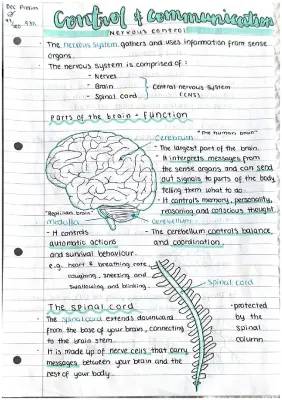 Dec Prelim
Control & communication
nervous control
· The nervous system gathers and uses information from sense
organs.
· The nervous system is comprised of:
- Nerves
- Brain
- Spinal cord
Central nervous system
(CNS)
Parts of the brain - Function
Cerebrum
"the human brain"
- The largest part of the brain.
- It interprets messages from
the sense organs and can send
out signals to parts of the body
telling them what to do
- It controls memory, personality,
reasoning and conscious thought.
"Reptilian brain"
medulla
- It controls
automatic actions
and survival behaviour.
e.g. heart & breathing rate,
coughing, sneezing and
swallowing and blinking.
cerebellum
- The cerebellum controls balance
and coordination.
spinal cord
The spinal cord
· The spinal cord extends downward
from the base of your brain, connecting
to the brain stem.
· It is made up of nerve cells that carry
messages between your brain and the
rest of your body.
-protected
by the
spinal
column.